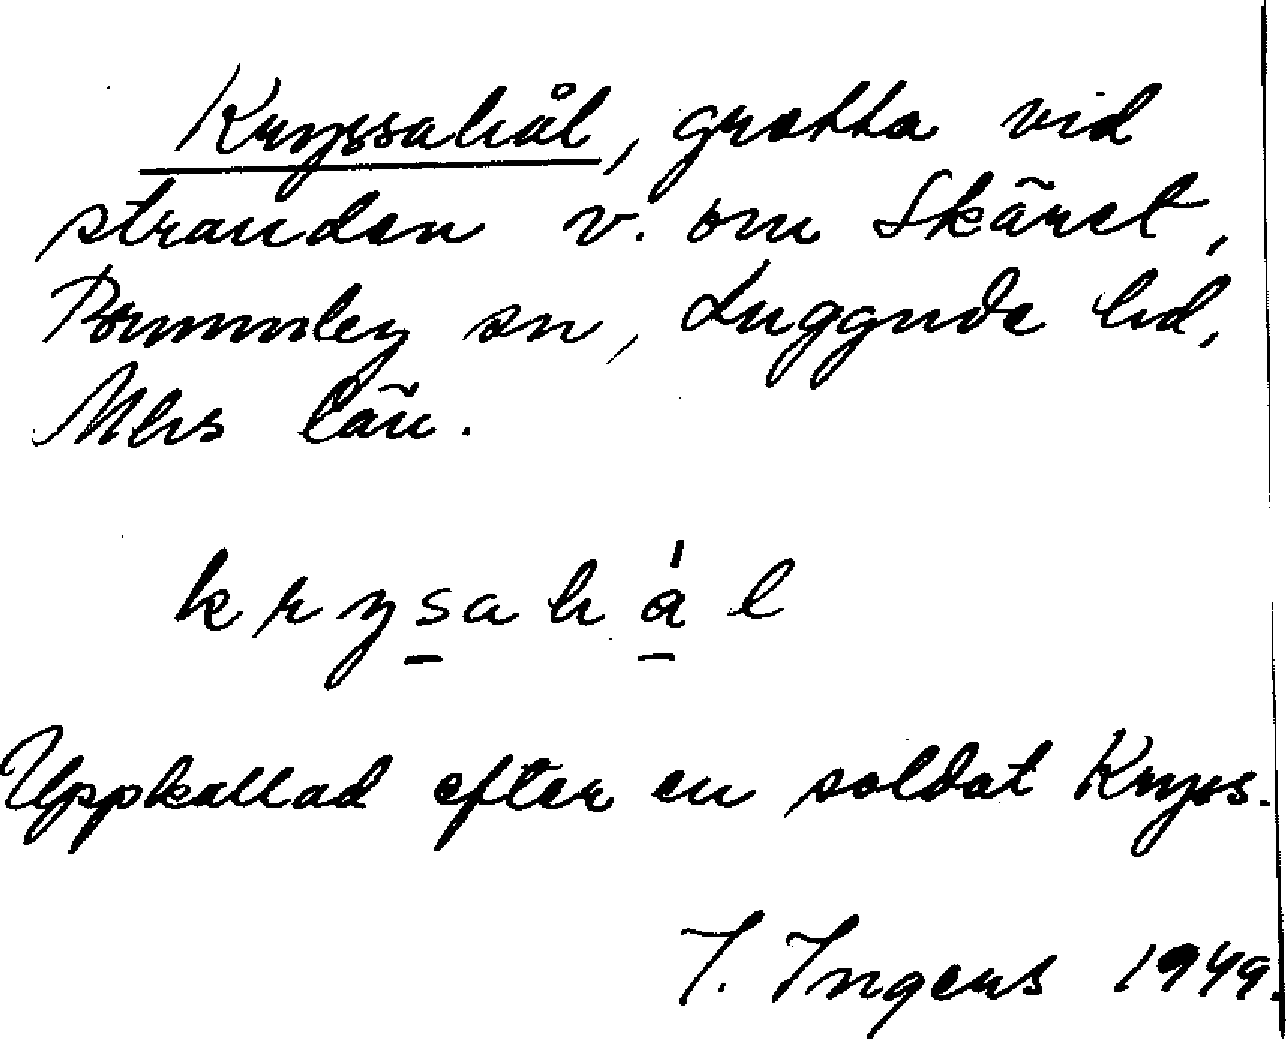 Kryssahål, grotta vid
stranden v. om Skäret,
Brunnby sn, Luggude hd,
Mhs län.
krysahål
Uppkallad efter en soldat Kryss.
I. Ingers 1949.